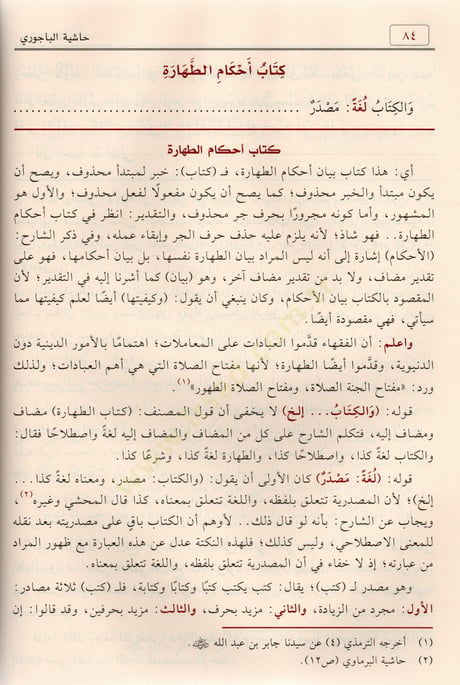 ٨٤
حاشية الباجوري
كِتَابُ أَحْكَامِ الطَّهَارَةِ
وَالكِتَابُ لُغَةً: مَصْدَرٌ
كتاب أحكام الطهارة
أي: هذا كتاب بيان أحكام الطهارة، فـ (كتاب): خبر لمبتدأ محذوف، ويصح أن
يكون مبتدأ والخبر محذوف؛ كما يصح أن يكون مفعولًا لفعل محذوف؛ والأول هو
المشهور، وأما كونه مجرورًا بحرف جر محذوف، والتقدير: انظر في كتاب أحكام
الطهارة.. فهو شاذ؛ لأنه يلزم عليه حذف حرف الجر وإبقاء عمله، وفي ذكر الشارح:
(الأحكام) إشارة إلى أنه ليس المراد بيان الطهارة نفسها، بل بيان أحكامها، فهو على
تقدير مضاف، ولا بد من تقدير مضاف آخر، وهو (بيان) كما أشرنا إليه في التقدير؛ لأن
المقصود بالكتاب بيان الأحكام، وكان ينبغي أن يقول: (وكيفيتها) أيضًا لعلم كيفيتها مما
سيأتي، فهي مقصودة أيضًا.
واعلم: أن الفقهاء قدَّموا العبادات على المعاملات؛ اهتمامًا بالأمور الدينية دون
الدنيوية، وقدَّموا أيضًا الطهارة؛ لأنها مفتاح الصلاة التي هي أهم العبادات؛ ولذلك
ورد: «مفتاح الجنة الصلاة، ومفتاح الصلاة الطهور»(١).
قوله: (وَالكِتَابُ... إلخ) لا يخفى أن قول المصنف: (كتاب الطهارة) مضاف
ومضاف إليه، فتكلم الشارح على كل من المضاف والمضاف إليه لغةً واصطلاحًا فقال:
والكتاب لغة كذا، واصطلاحًا كذا، والطهارة لغة كذا، وشرعًا كذا.
قوله: (لُغَةً: مَصْدَرٌ) كان الأولى أن يقول: (والكتاب: مصدر، ومعناه لغةً كذا...
إلخ)؛ لأن المصدرية تتعلق بلفظه، واللغة تتعلق بمعناه، كذا قال المحشي وغيره(٢)،
ويجاب عن الشارح: بأنه لو قال ذلك.. لأوهم أن الكتاب باقٍ على مصدريته بعد نقله
للمعنى الاصطلاحي، وليس كذلك؛ فلهذه النكتة عدل عن هذه العبارة مع ظهور المراد
من عبارته؛ إذ لا خفاء في أن المصدرية تتعلق بلفظه، واللغة تتعلق بمعناه.
وهو مصدر لـ (كتب)؛ يقال: كتب يكتب كتبًا وكتابًا وكتابة، فلـ (كتب) ثلاثة مصادر:
الأول: مجرد من الزيادة، والثاني: مزيد بحرف، والثالث: مزيد بحرفين، وقد قالوا: إن
(١) أخرجه الترمذي (٤) عن سيدنا جابر بن عبد الله ﷺ.
(٢) حاشية البرماوي (ص١٢).